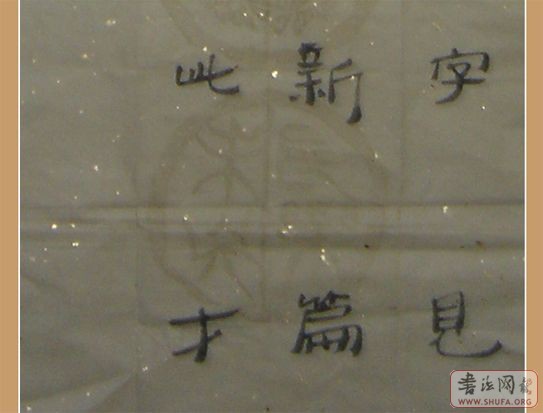 字見
新篇
此才
書法网
WWW.SHUFA.ORG